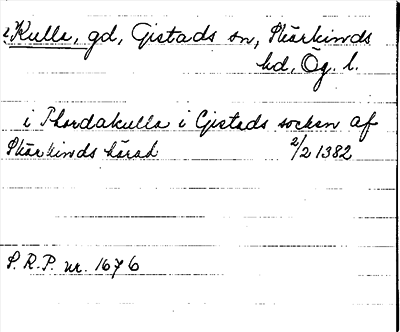 2 Kulla, gd, Gistads sn, Skärkinds
hd, Ög. l.
i Thordakulla i Gistads socken af
Skärkinds härad 2/2 1382
S.R.P. nr. 1676